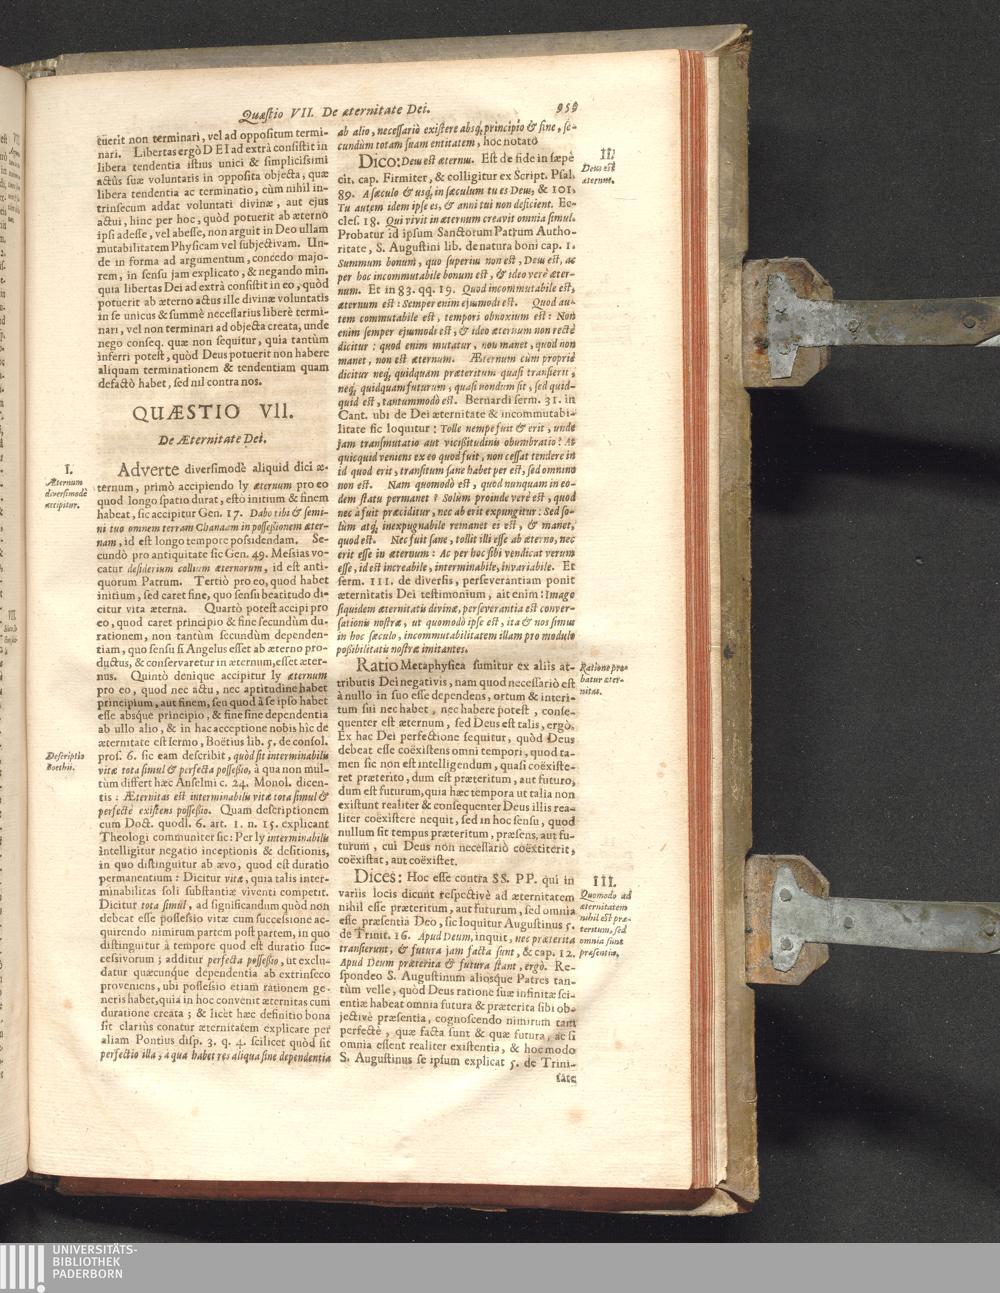 Quæstio VII. De æternitate Dei. 959
tuerit non terminari, vel ad oppositum termi-
nari. Libertas ergò DEI ad extrà consistit in
libera tendentia istius unici & simplicissimi
actûs suæ voluntatis in opposita objecta, quæ
libera tendentia ac terminatio, cùm nihil in-
trinsecum addat voluntati divinæ, aut ejus
actui, hinc per hoc, quòd potuerit ab æterno
ipsi adesse, vel abesse, non arguit in Deo ullam
mutabilitatem Physicam vel subjectivam. Un-
de in forma ad argumentum, concedo majo-
rem, in sensu jam explicato, & negando min.
quia libertas Dei ad extrà consistit in eo, quòd
potuerit ab æterno actus ille divinæ voluntatis
in se unicus & summè necessarius liberè termi-
nari, vel non terminari ad objecta creata, unde
nego conseq. quæ non sequitur, quia tantùm
inferri potest, quòd Deus potuerit non habere
aliquam terminationem & tendentiam quam
defactò habet, sed nil contra nos.
QUÆSTIO VII.
De Æternitate Dei.
I.
Æternum
diversimodè
accipitur.
Adverte diversimodè aliquid dici æ-
ternum, primò accipiendo ly æternum pro eo
quod longo spatio durat, estò initium & finem
habeat, sic accipitur Gen. 17. Dabo tibi & semi-
ni tuo omnem terram Chanaam in possessionem æter-
nam, id est longo tempore possidendam. Se-
cundò pro antiquitate sic Gen. 49. Messias vo-
catur desiderium collium æternorum, id est anti-
quorum Patrum. Tertiò pro eo, quod habet
initium, sed caret fine, quo sensu beatitudo di-
citur vita æterna. Quartò potest accipi pro
eo, quod caret principio & fine secundùm du-
rationem, non tantùm secundùm dependen-
tiam, quo sensu si Angelus esset ab æterno pro-
ductus, & conservaretur in æternum, esset æter-
nus. Quintò denique accipitur ly æternum
pro eo, quod nec actu, nec aptitudine habet
principium, aut finem, seu quod à se ipso habet
esse absque principio, & fine sine dependentia
ab ullo alio, & in hac acceptione nobis hîc de
æternitate est sermo, Boëtius lib. 5. de consol.
pros. 6. sic eam describit, quòd sit interminabilis
vitæ tota simul & perfecta possessio, à qua non mul-
tùm differt hæc Anselmi c. 24. Monol. dicen-
tis: Æternitas est interminabilis vitæ tota simul &
perfectè existens possessio. Quam descriptionem
cum Doct. quodl. 6. art. 1. n. 15. explicant
Theologi communiter sic: Per ly interminabilis
intelligitur negatio inceptionis & desitionis,
in quo distinguitur ab ævo, quod est duratio
permanentium: Dicitur vitæ, quia talis inter-
minabilitas soli substantiæ viventi competit.
Dicitur tota simul, ad significandum quòd non
debeat esse possessio vitæ cum successione ac-
quirendo nimirum partem post partem, in quo
distinguitur à tempore quod est duratio suc-
cessivorum; additur perfecta possessio, ut exclu-
datur quæcunque dependentia ab extrinseco
proveniens, ubi possessio etiam rationem ge-
neris habet, quia in hoc convenit æternitas cum
duratione creata; & licèt hæc definitio bona
sit clariùs conatur æternitatem explicare per
aliam Pontius disp. 3. q. 4. scilicet quòd sit
perfectio illa, à qua habet res aliqua sine dependentia
Descriptio
Boethii.
ab alio, necessariò existere absq; principio & fine, se-
cundùm totam suam entitatem, hoc notato
II.
Deus est
æternus.
Dico: Deus est æternus. Est de fide in sæpè
cit. cap. Firmiter, & colligitur ex Script. Psal.
89. A sæculo & usq; in sæculum tu es Deus, & 101.
Tu autem idem ipse es, & anni tui non deficient. Ec-
cles. 18. Qui vivit in æternum creavit omnia simul.
Probatur id ipsum Sanctorum Patrum Autho-
ritate, S. Augustini lib. de natura boni cap. 1.
Summum bonum, quo superius non est, Deus est, ac
per hoc incommutabile bonum est, & ideo verè æter-
num. Et in 83. qq. 19. Quod incommutabile est,
æternum est: Semper enim ejusmodi est. Quod au-
tem commutabile est, tempori obnoxium est: Non
enim semper ejusmodi est, & ideo æternum non rectè
dicitur: quod enim mutatur, non manet, quod non
manet, non est æternum. Æternum cùm propriè
dicitur neq; quidquam præteritum quasi transierit,
neq; quidquam futurum, quasi nondum sit, sed quid-
quid est, tantummodò est. Bernardi serm. 31. in
Cant. ubi de Dei æternitate & incommutabi-
litate sic loquitur: Tolle nempe fuit & erit, unde
jam transmutatio aut vicissitudinis obumbratio? At
quicquid veniens ex eo quod fuit, non cessat tendere in
id quod erit, transitum sane habet per est, sed omnino
non est. Nam quomodò est, quod nunquam in eo-
dem statu permanet? Solùm proinde verè est, quod
nec à fuit præciditur, nec ab erit expungitur: Sed so-
lùm atq; inexpugnabile remanet ei est, & manet,
quod est. Nec fuit sane, tollit illi esse ab æterno, nec
erit esse in æternum: Ac per hoc sibi vendicat verum
esse, id est increabile, interminabile, invariabile. Et
serm. 111. de diversis, perseverantiam ponit
æternitatis Dei testimonium, ait enim: Imago
siquidem æternitatis divinæ, perseverantia est conver-
sationis nostræ, ut quomodò ipse est, ita & nos simus
in hoc sæculo, incommutabilitatem illam pro modulo
possibilitatis nostræ imitantes.
Ratione pro-
batur æter-
nitas.
Ratio Metaphysica sumitur ex aliis at-
tributis Dei negativis, nam quod necessariò est
à nullo in suo esse dependens, ortum & interi-
tum sui nec habet, nec habere potest, conse-
quenter est æternum, sed Deus est talis, ergò.
Ex hac Dei perfectione sequitur, quòd Deus
debeat esse coëxistens omni tempori, quod ta-
men sic non est intelligendum, quasi coëxiste-
ret præterito, dum est præteritum, aut futuro,
dum est futurum, quia hæc tempora ut talia non
existunt realiter & consequenter Deus illis rea-
liter coëxistere nequit, sed in hoc sensu, quod
nullum sit tempus præteritum, præsens, aut fu-
turum, cui Deus non necessariò coëxtiterit,
coëxistat, aut coëxistet.
III.
Quomodo ad
æternitatem
nihil est præ-
teritum, sed
omnia sunt
præsentia.
Dices: Hoc esse contra SS. PP. qui in
variis locis dicunt respectivè ad æternitatem
nihil esse præteritum, aut futurum, sed omnia
esse præsentia Deo, sic loquitur Augustinus 5.
de Trinit. 16. Apud Deum, inquit, nec præterita
transierunt, & futura jam facta sunt, & cap. 12.
Apud Deum præterita & futura stant, ergò. Re-
spondeo S. Augustinum aliosque Patres tan-
tùm velle, quòd Deus ratione suæ infinitæ sci-
entiæ habeat omnia futura & præterita sibi ob-
jectivè præsentia, cognoscendo nimirum tam
perfectè, quæ facta sunt & quæ futura, ac si
omnia essent realiter existentia, & hoc modo
S. Augustinus se ipsum explicat 5. de Trini-
tate
UNIVERSITÄTS-
BIBLIOTHEK
PADERBORN